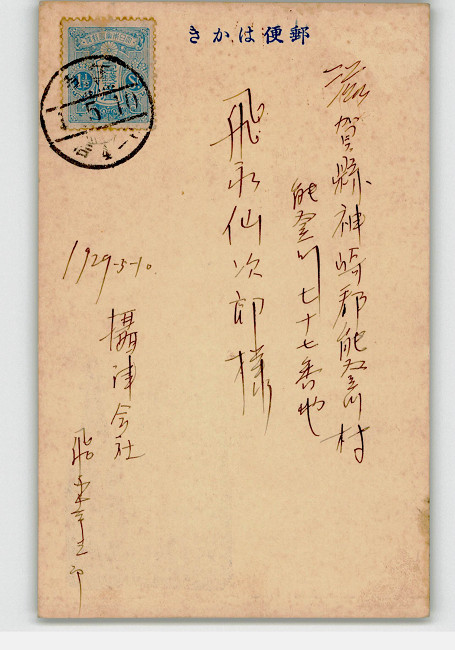 郵便はかき
滋賀縣神崎郡能登川村
能登川七十七番地
飛永仙次郎様
1929-5-10.
攝津会社
飛永
1½ S
5.10